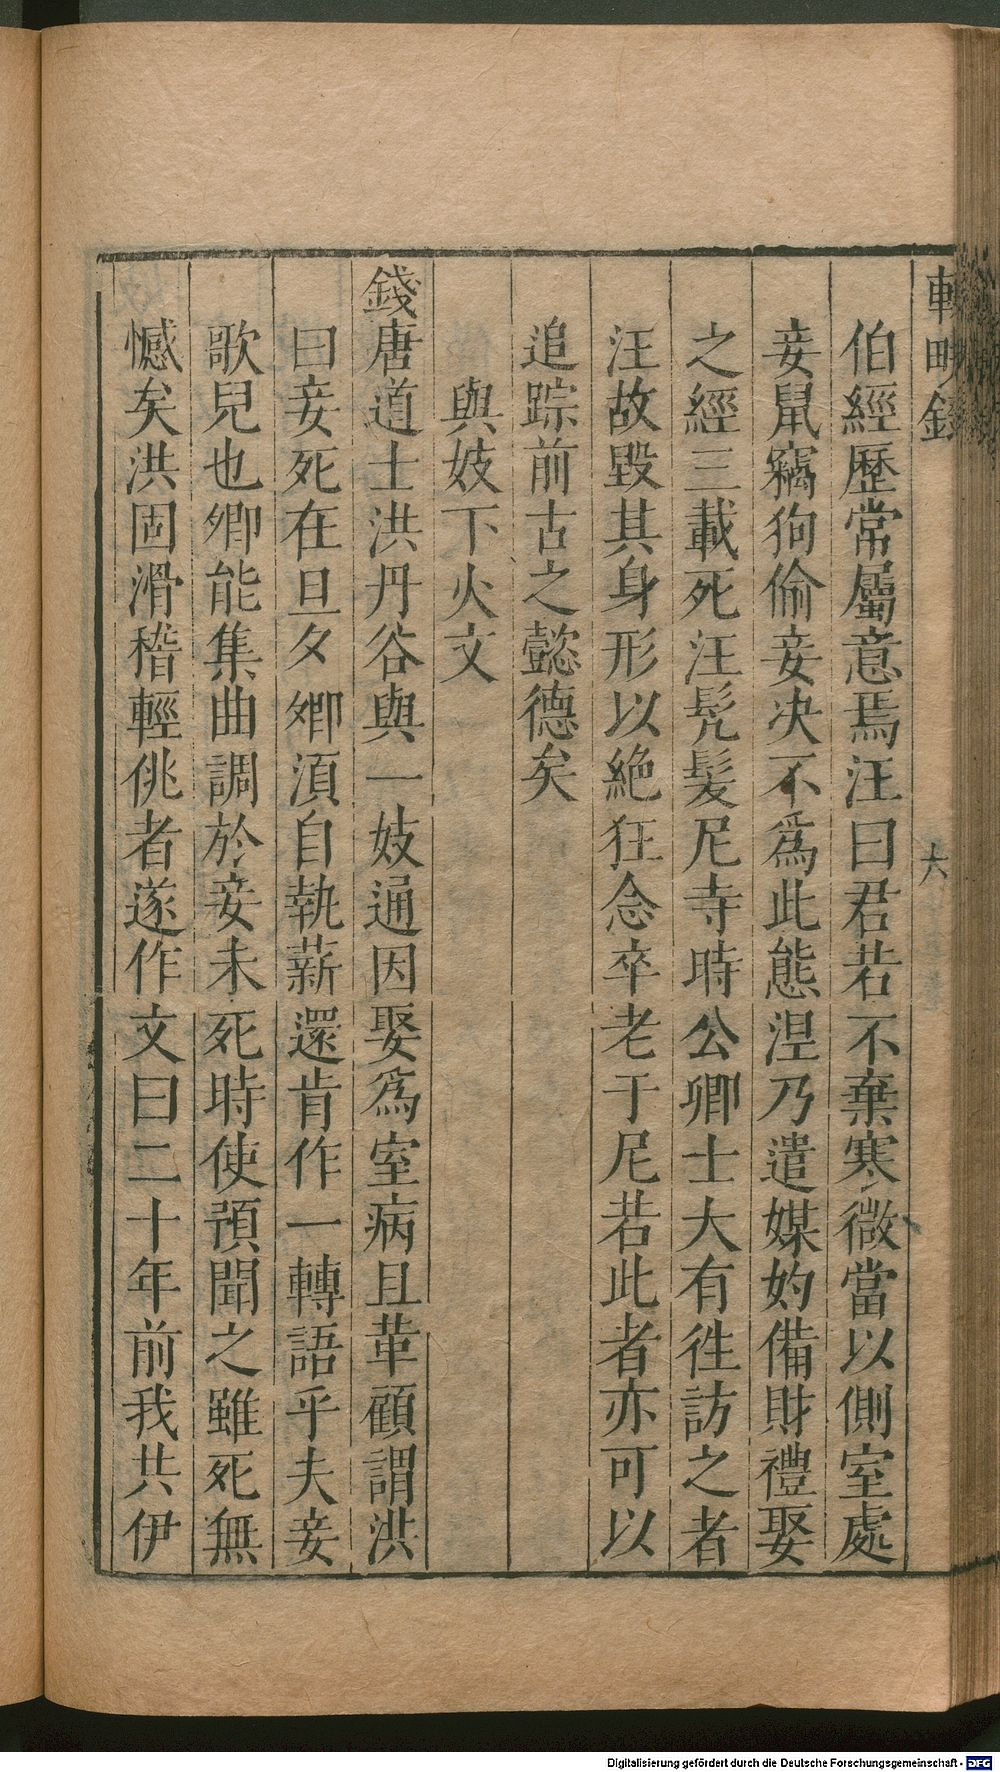 伯經歷常屬意焉汪曰君若不棄寒微當以側室處
妾鼠竊狗偷妾决不爲此態涅乃遣媒妁備財禮娶
之經三載死汪髠髮尼寺時公卿士大有徃訪之者
汪故毀其身形以絶狂念卒老于尼若此者亦可以
追踪前古之懿德矣
與妓下火文
錢唐道士洪丹谷與一妓通因娶爲室病且革顧謂洪
曰妾死在旦夕卿須自執薪還肯作一轉語乎夫妾
歌兒也卿能集曲調於妾未死時使預聞之雖死無
憾矣洪固滑稽輕佻者遂作文曰二十年前我共伊
六
Digitalisierung gefördert durch die Deutsche Forschungsgemeinschaft - DFG